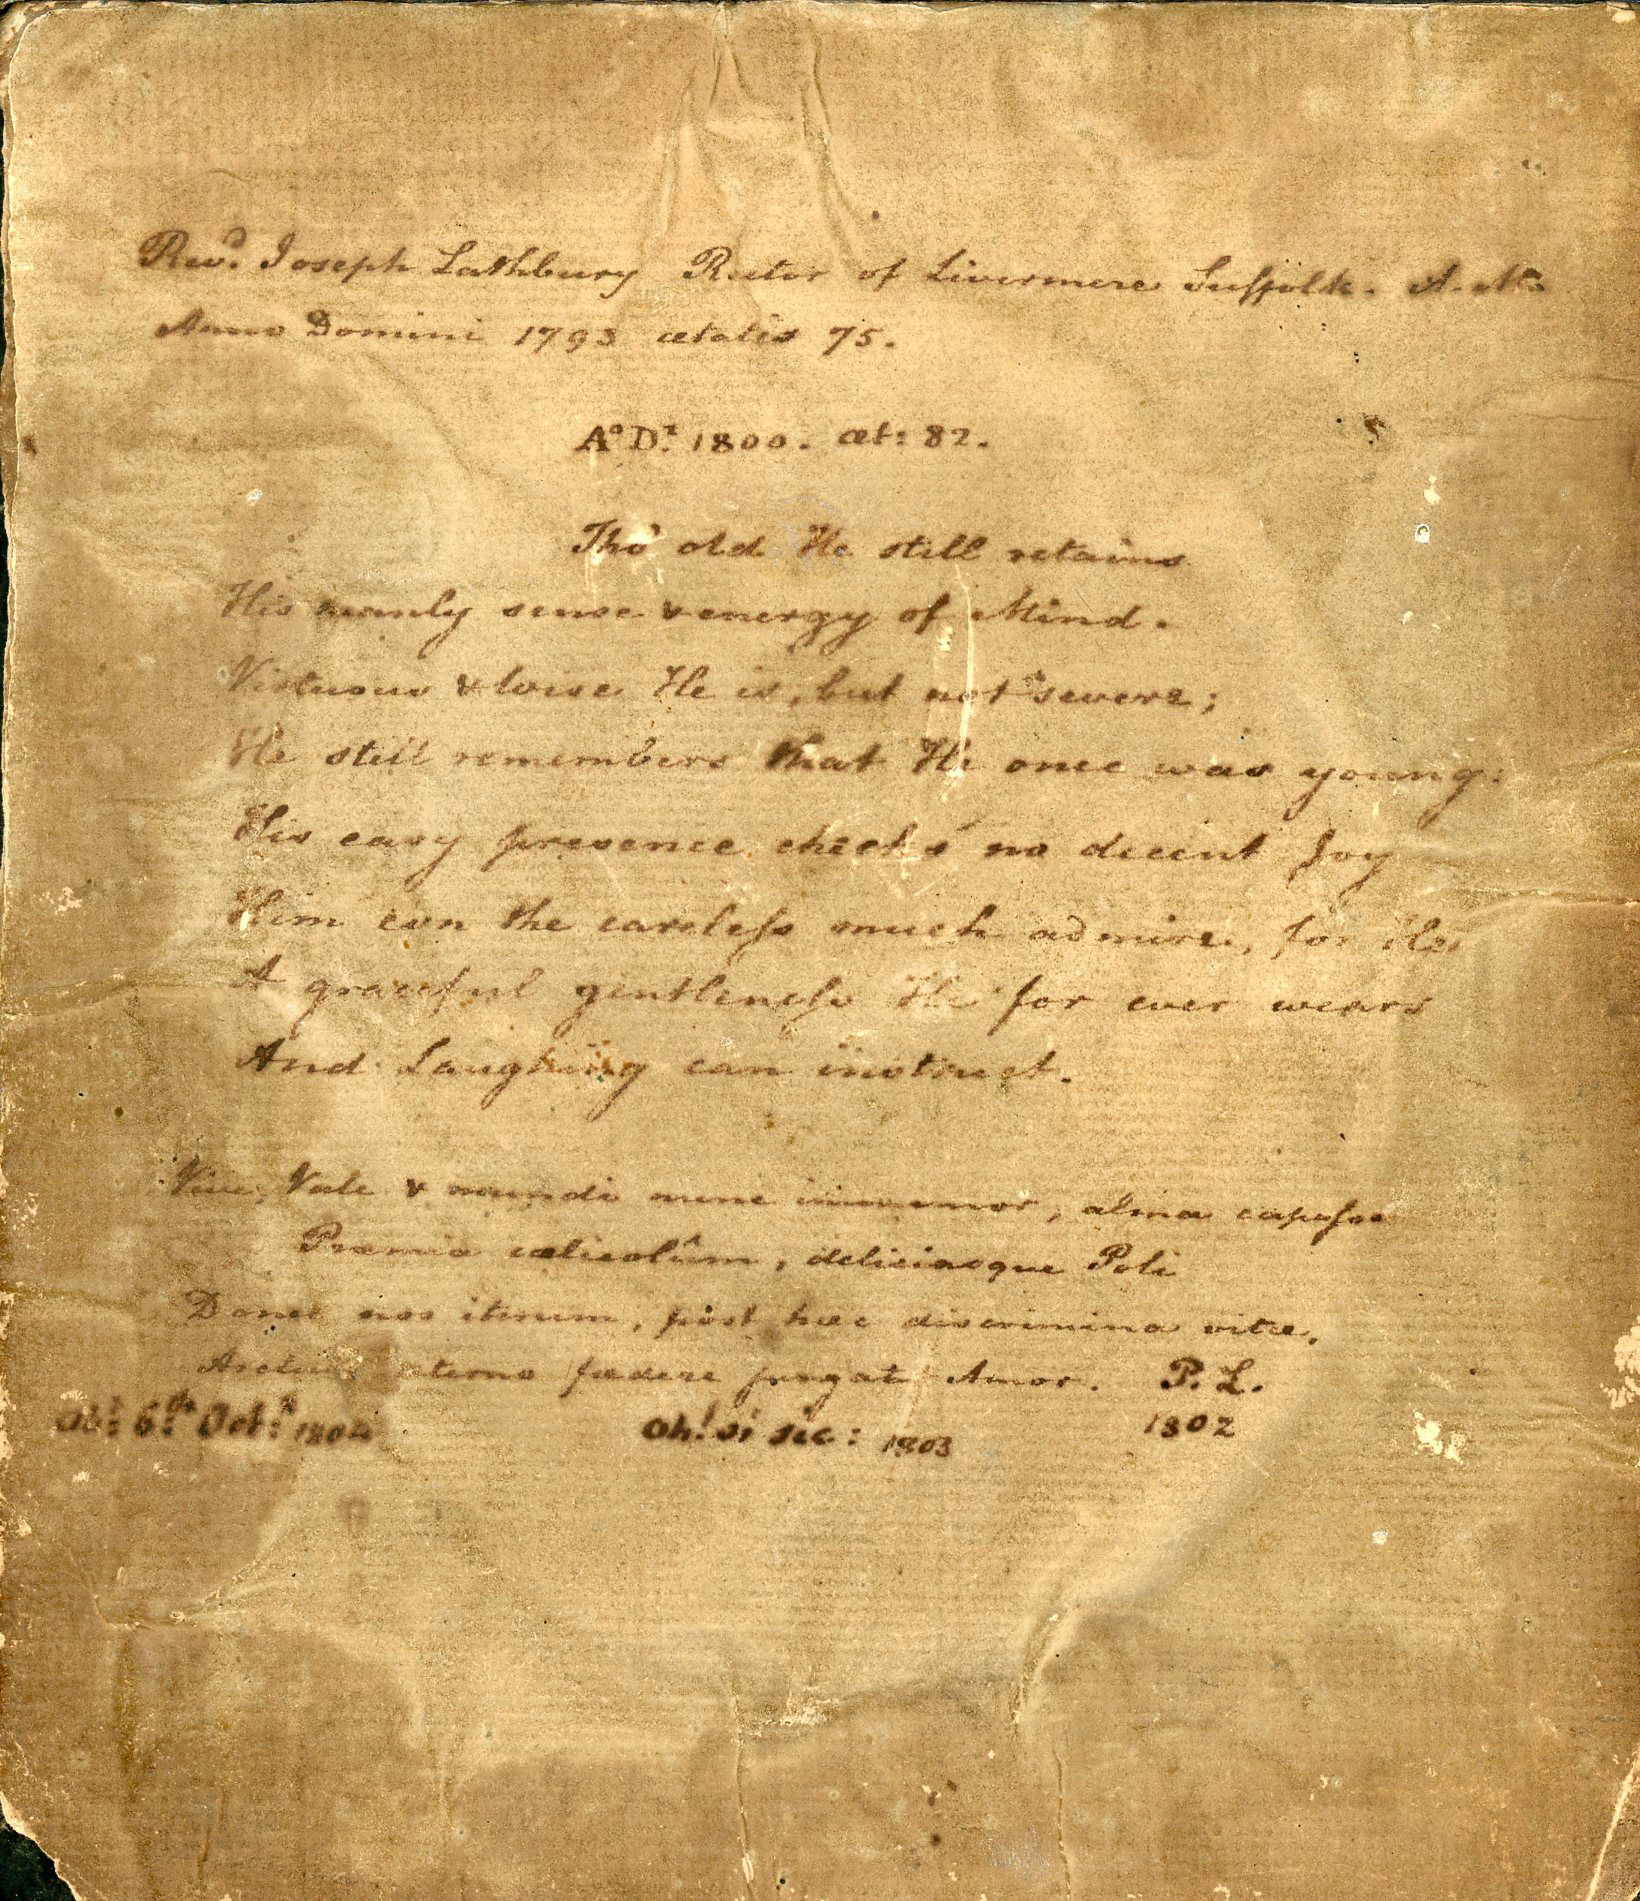 Revd. Joseph Lathbury Rector of Livermere Suffolk. A.M.
Anno Domini 1793 ætatis 75.
Ao D.i 1800. æt: 82.
Tho' old He still retains
His manly sense & energy of Mind.
Virtuous & wise He is, but not severe;
He still remembers that He once was young:
His easy presence checks no decent Joy
Him even the careless much admire, for
A graceful gentleness He for ever wears
And Laughing can instruct.
Vive, Vale & mundi nunc immemor, alma capesse
Præmia cælicolûm, deliciasque Poli
Donec nos iterum, post hæc discrimina vitæ,
æterno fædere jungat Amor. P. L.
Ob.t 6.th Oct.r 1804 Oh! si sic: 1803 1802